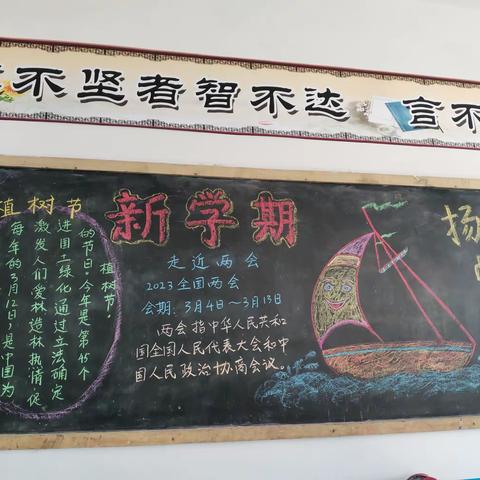 不坚者智不达 言不
植树节
每年的3月12日,是中国为
激发人们爱林造林热情促
进国土绿化,通过立法确定
的节日。今年是第45个
植树节。
新学期
走近两会
2023全国两会
会期：3月4日～3月13日
两会指中华人民共和
国全国人民代表大会和中
国人民政治协商会议。
扬